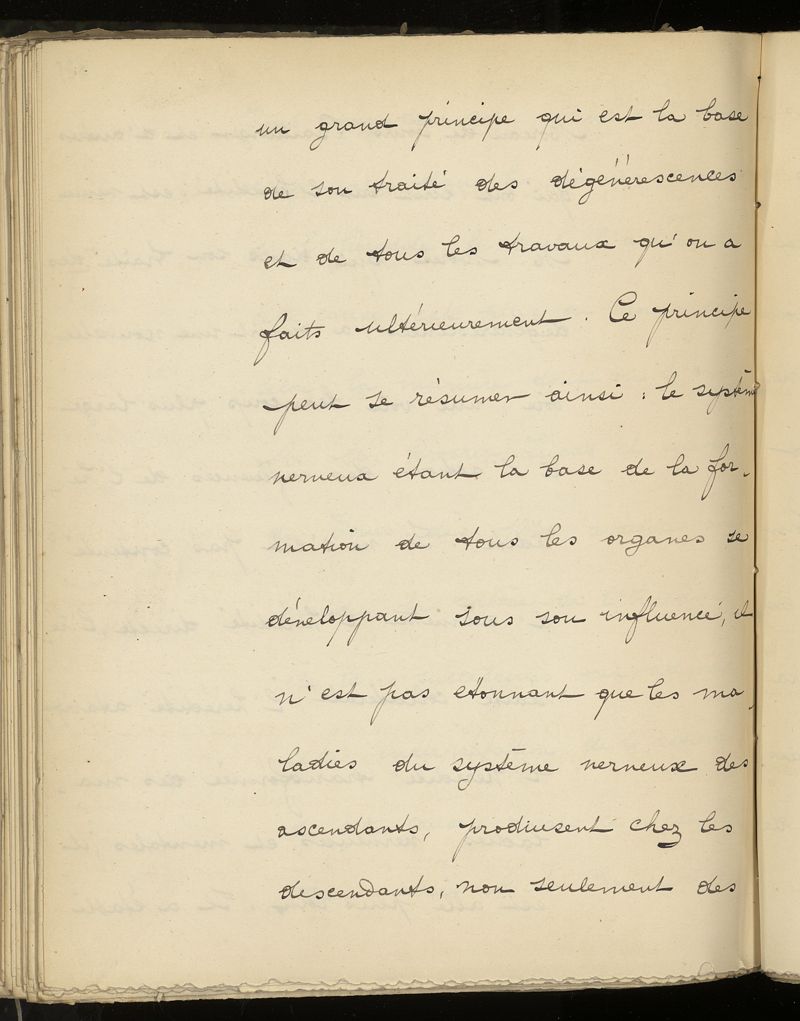 un grand principe qui est la base
de son traité des dégénérescences
et de tous les travaux qu'on a
faits ultérieurement. Ce principe
peut se résumer ainsi : le système
nerveux étant la base de la for-
mation de tous les organes se
développant sous son influence, il
n'est pas étonnant que les ma-
ladies du système nerveux des
ascendants, produisent chez les
descendants, non seulement des